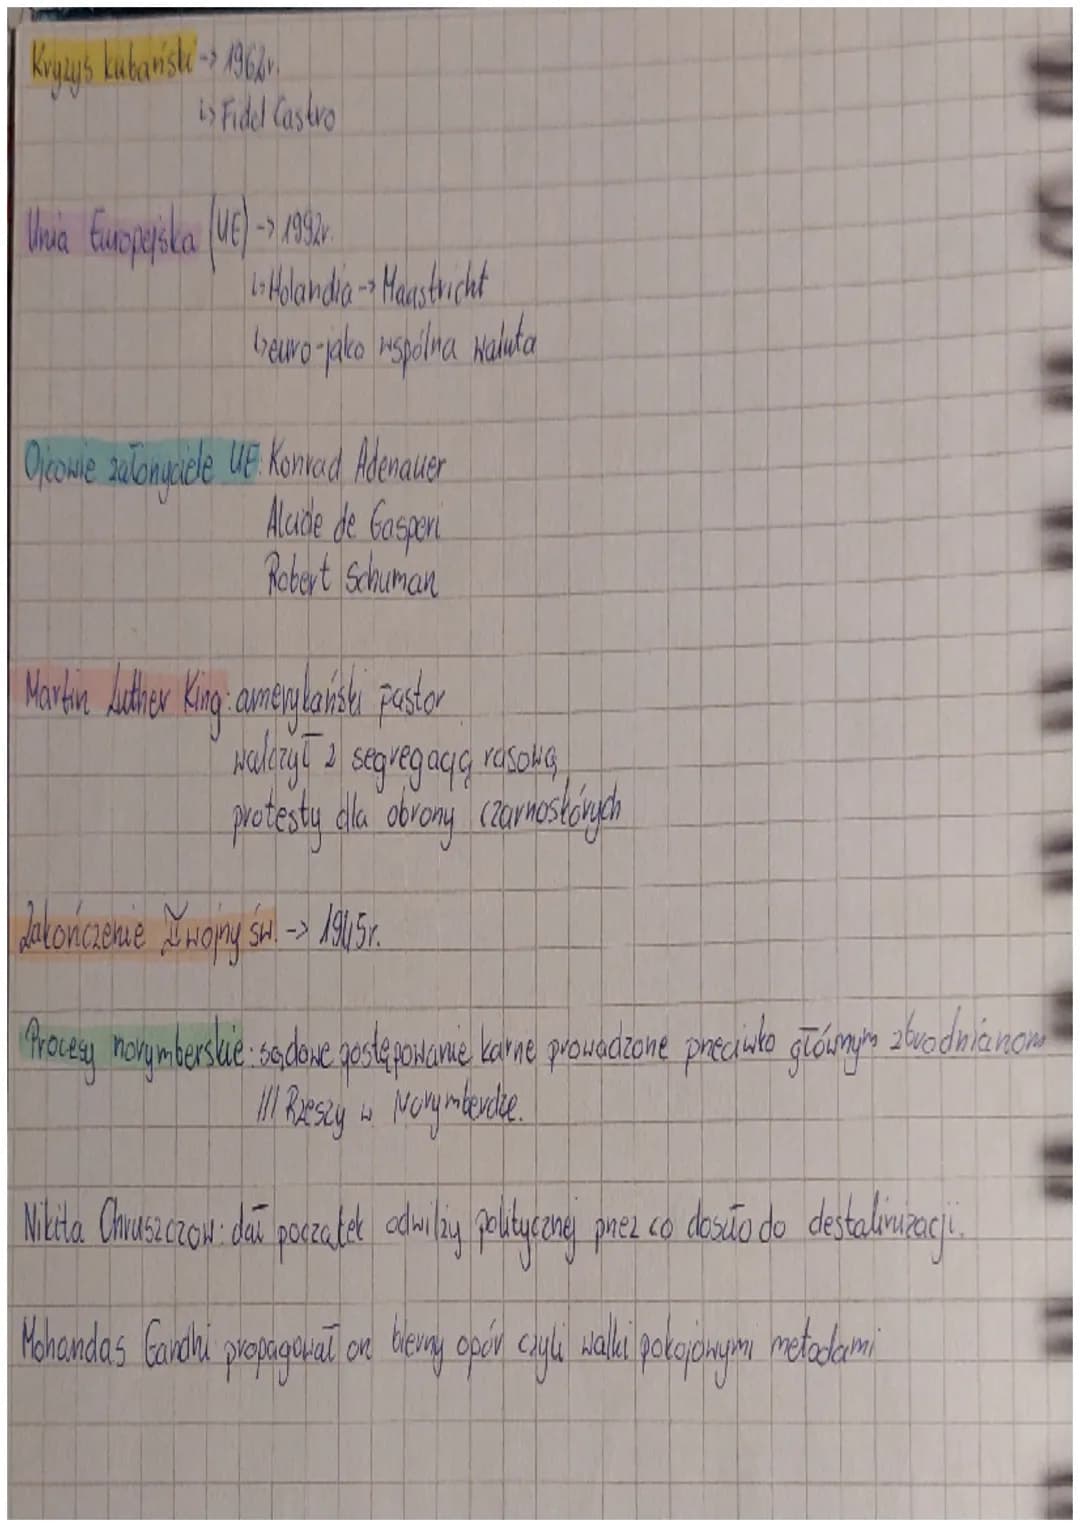 Kryzys kubański -> 1962r.
↳ Fidel Castro
Unia Europejska (UE) -> 1992r.
↳ Holandia -> Maastricht
↳ euro-jako wspólna waluta
Ojcowie założyciele UE: Konrad Adenauer
Alcide de Gasperi
Robert Schuman
Martin Luther King: amerykański pastor
walczył z segregacją rasową
protesty dla obrony czarnoskórych
Zakończenie II wojny św. -> 1945r.
Procesy norymberskie: sądowe postępowanie karne prowadzone przeciwko głównym zbrodnianom
III Rzeszy w Norymberdze.
Nikita Chruszczow: dał początek odwilży politycznej przez co doszło do destalinizacji.
Mohandas Gandhi propagował on bierny opór czyli walki pokojowymi metodami